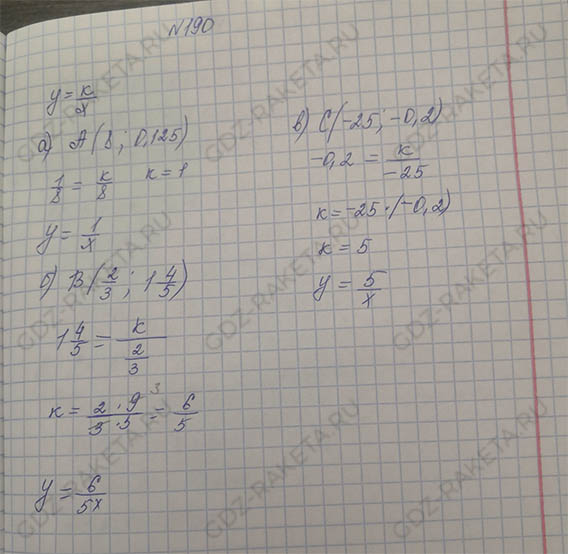 №190
y = к/x
а) A(8; 0,125)
1/8 = к/8 к = 1
y = 1/x
б) B(2/3; 1 4/5)
1 4/5 = к/(2/3)
к = 2·9 3/3·5 = 6/5
y = 6/5x
в) C(-25; -0,2)
-0,2 = к/-25
к = -25·(-0,2)
к = 5
y = 5/x
GDZ-RAKETA.RU